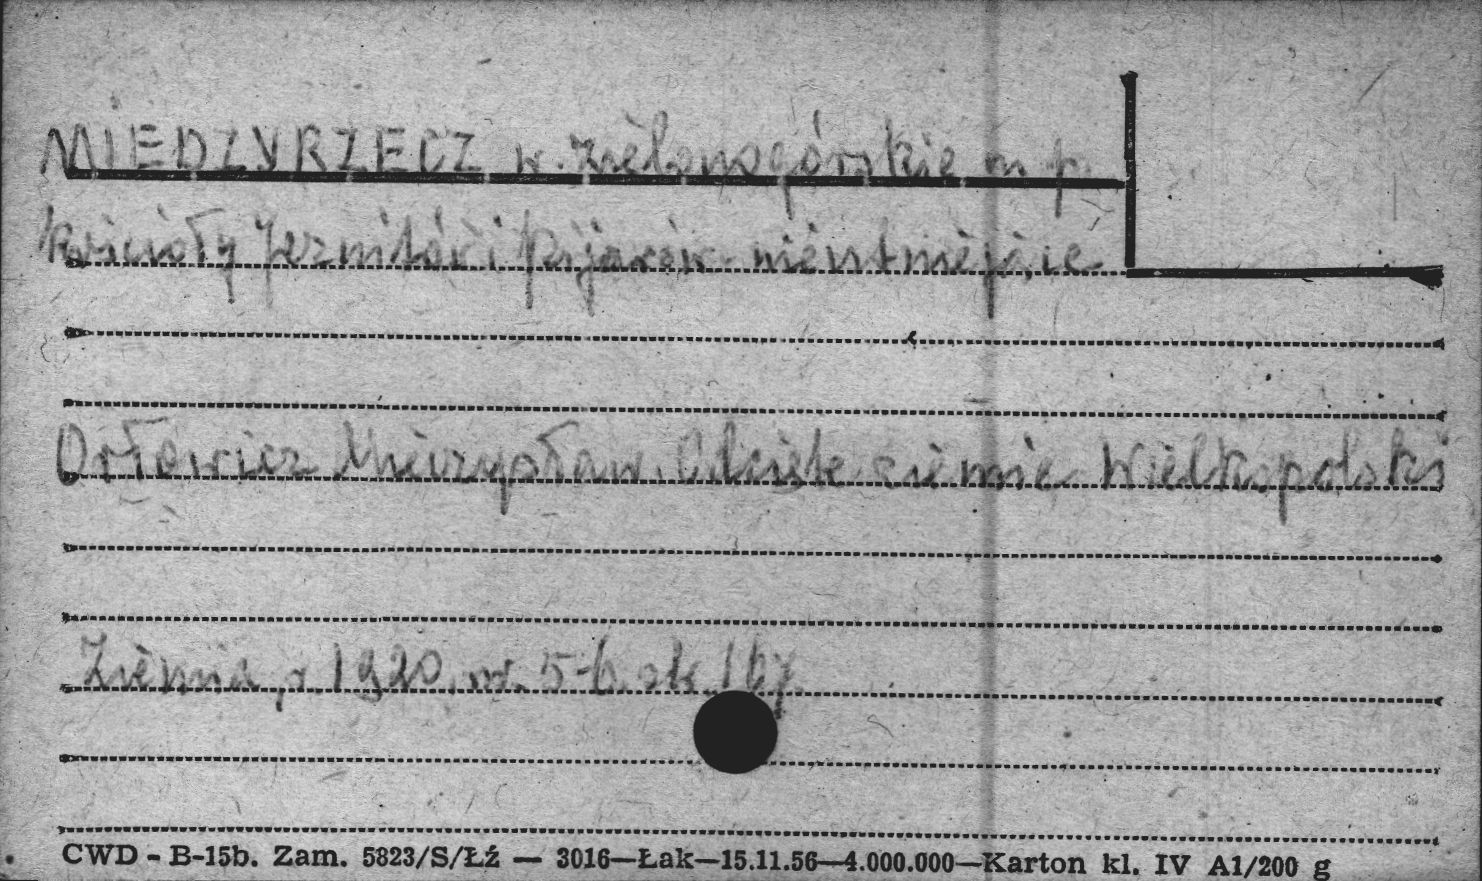 MIEDZYRZECZ w. zielonogórskie m p.
kościoły Jezuitów i Pijarów nieistniejące
Orłowicz Mieczysław. Odcięte ziemie Wielkopolski
Ziemia r. 1920. nr. 5-6. str. 167
CWD - B-15b. Zam. 5823/S/Łź — 3016—Łak—15.11.56—4.000.000—Karton kl. IV A1/200 g